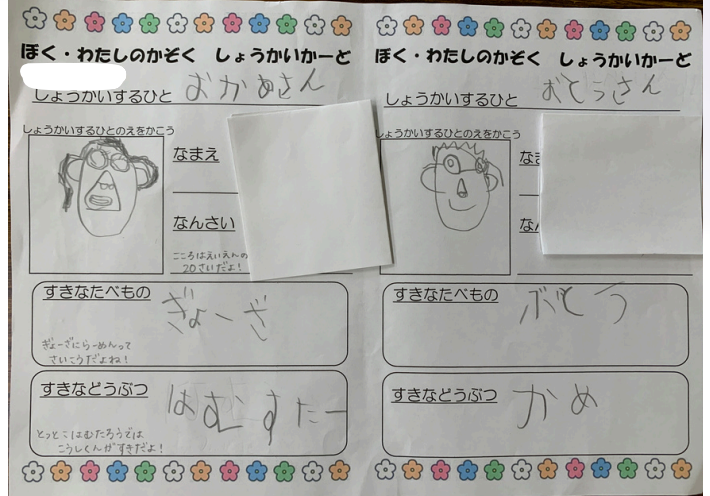 ぼく・わたしのかぞく しょうかいかーど
しょうかいするひと おかあさん
しょうかいするひとのえをかこう
なまえ
なんさい
こころはえいえんの
20さいだよ!
すきなたべもの
ぎょーざ
ぎょーざにらーめんって
さいこうだよね!
すきなどうぶつ
はむすたー
とっとこはむたろうでは
こうしくんがすきだよ!
ぼく・わたしのかぞく しょうかいかーど
しょうかいするひと おとうさん
しょうかいするひとのえをかこう
なま
な
すきなたべもの
ぶどう
すきなどうぶつ
かめ